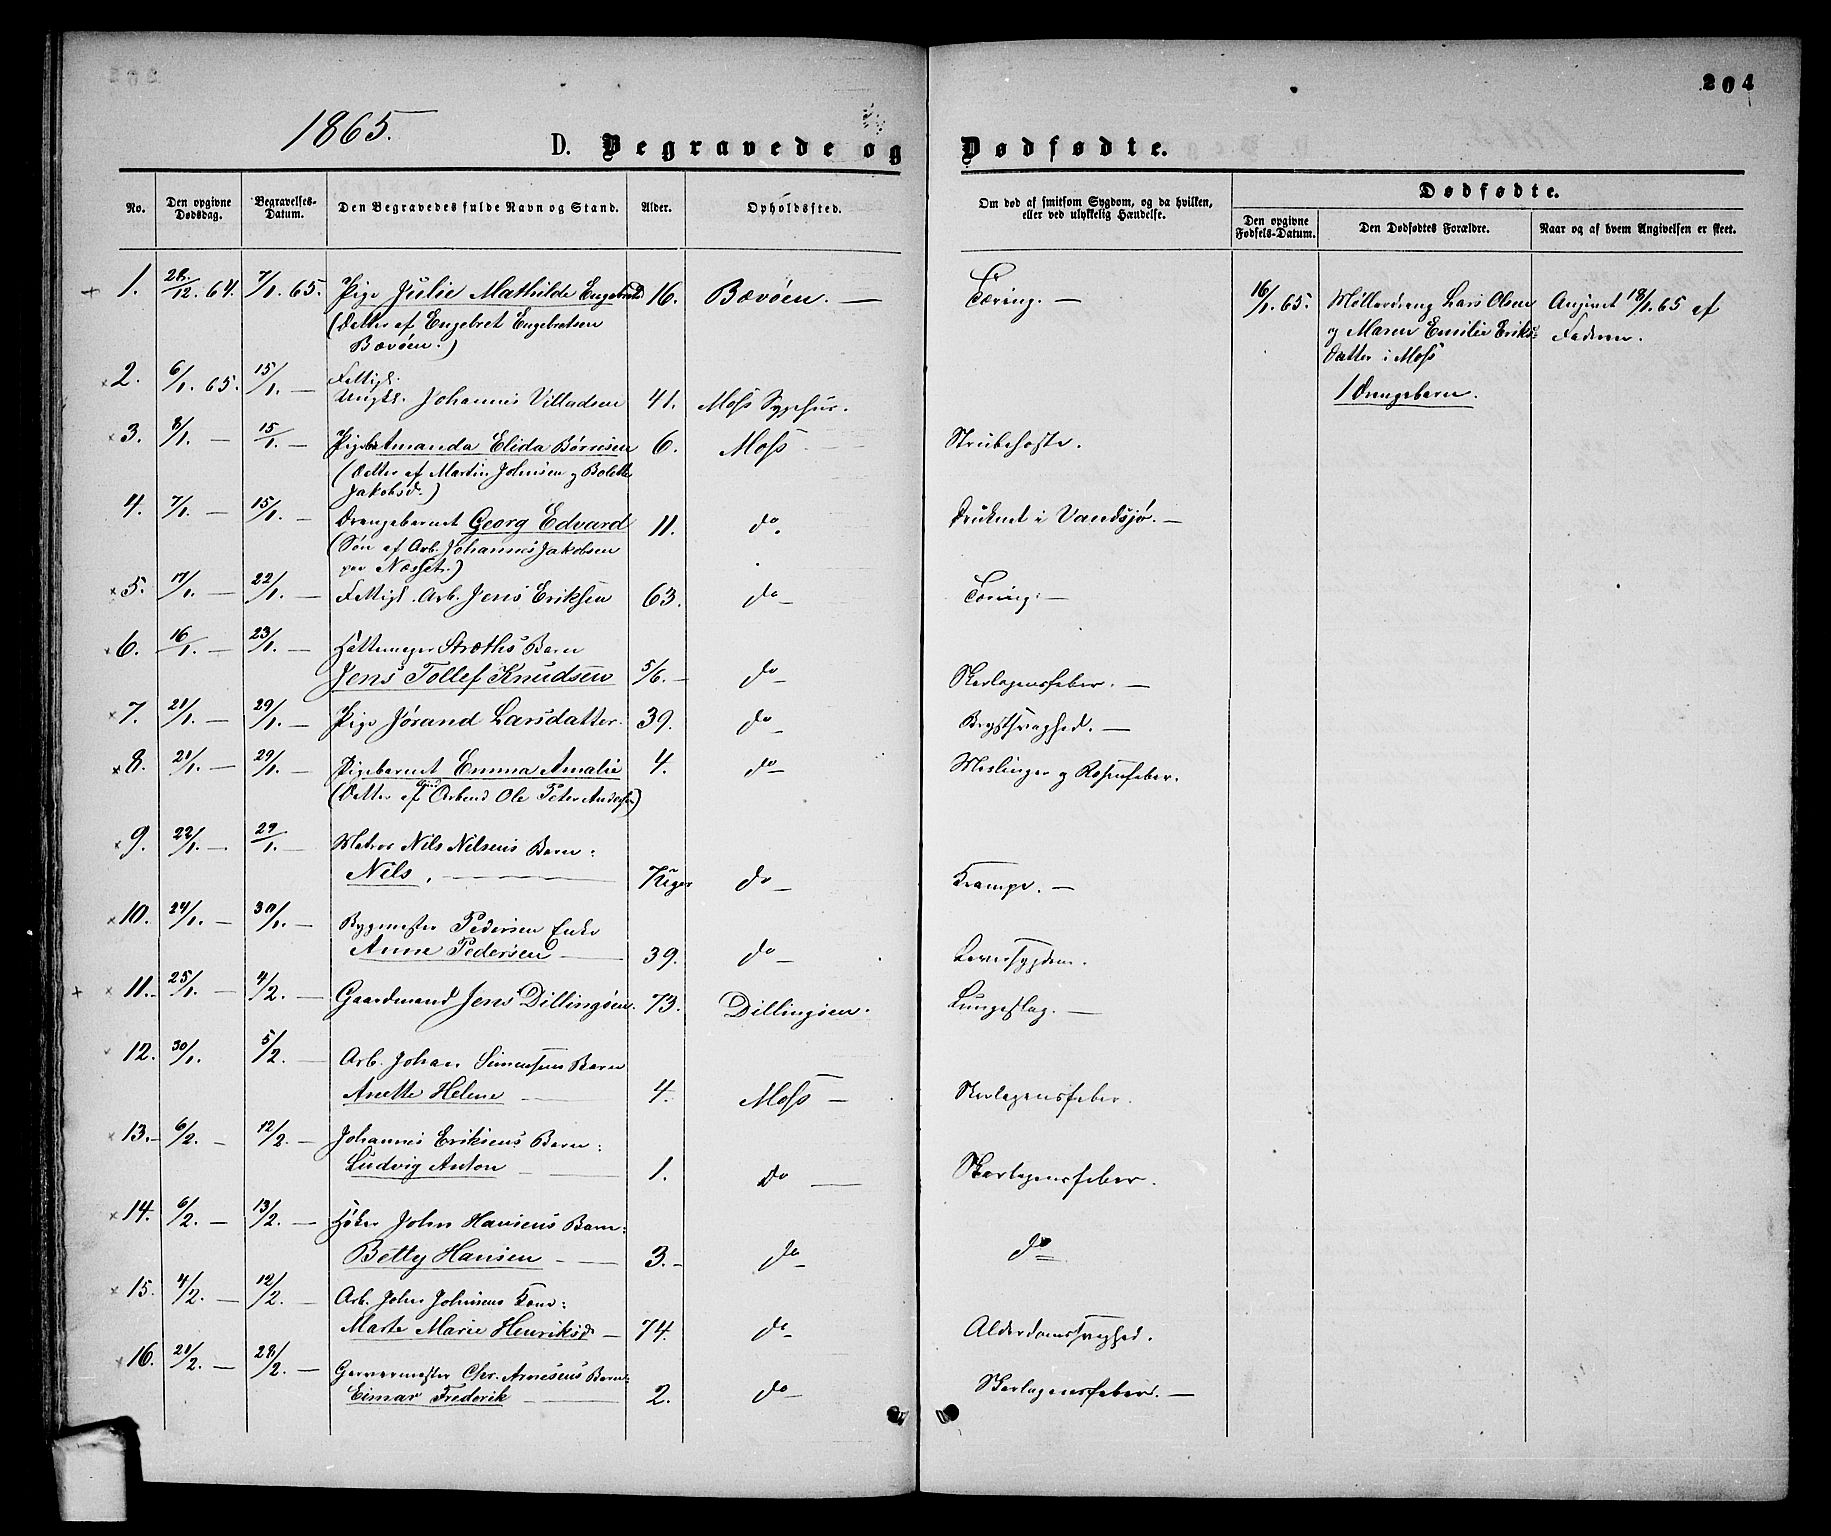 204
1865.
D. Begravede og Dødfødte.
No.
Den opgivne Dødsdag.
Begravelses-Datum.
Den Begravedes fulde Navn og Stand.
Alder.
Opholdssted.
Om død af smitsom Sygdom, og da hvilken, eller ved ulykkelig Hændelse.
Dødfødte.
Den opgivne Fødsels-Datum.
Den Dødfødtes Forældre.
Naar og af hvem Angivelsen er skeet.
1. 28/12. 64. 7/1. 65. Pige Julie Mathilde Engebretsd 16. Bævøen. — Tæring. —
(Datter af Engebret Engebretsen
Bævøen.)
16/1. 65. Møllerdreng Lars Olsen
og Maren Emilie Eriks-
datter i Moss
1 Drengebarn.
Angivet 18/1. 65 af
Faderen.
2. 6/1. 65. 15/1. — Fattigl.
Ungkl. Johannes Villadsen 41. Moss Sygehus.
3. 8/1. — 15/1. — Pigeb. Amanda Elida Børresen 6. Moss — Strubehoste.
(Datter af Martin Johnsen og Bolette
Jakobsd.)
4. 7/1. — 15/1. — Drengebarnet Georg Edvard 11. do. Druknet i Vandsjø. —
(Søn af Arb. Johannes Jakobsen
paa Næsset.)
5. 17/1. — 22/1. — Fattigl. Arb. Jens Eriksen 63. do — Tæring. —
6. 16/1. — 23/1. — Hattemager Stræths Barn
Jens Tollef Knudsen 5/6. — do — Skarlagensfeber. —
7. 21/1. — 29/1. — Pige Jørand Larsdatter. 39. do — Brystsvaghed. —
8. 21/1. — 29/1. — Pigebarnet Emma Amalie 4. do — Meslinger og Rosenfeber.
(Datter af Arbmd Ole Peter Anders)
9. 22/1. — 29/1. — Matros Nils Nilsens Barn:
Nils. — 7 Uger do — Krampe. —
10. 24/1. — 30/1. — Bygmester Pedersen Enke
Anne Pedersen — 39. do — Leversygdom.
11. 25/1. — 4/2. — Gaardmand Jens Dillingøen. 73. Dillingøen. Lungeslag. —
12. 30/1. 5/2. — Arb. Johan Simensens Barn
Anette Helene — 4. Moss — Skarlagensfeber.
13. 6/2. — 12/2. — Johannes Eriksens Barn:
Ludvig Anton — 1. do — Skarlagensfeber.
14. 6/2. — 13/2. — Høker John Hansens Barn:
Betty Hansen — 3. — do — do
15. 4/2. — 12/2. — Arb. John Johnsens Kone:
Marte Marie Henriksd — 74. do — Alderdomssvaghed.
16. 21/2. — 28/2. — Garvermester Chr. Arnesens Barn:
Eimar Frederik — 2. do — Skarlagensfeber. —